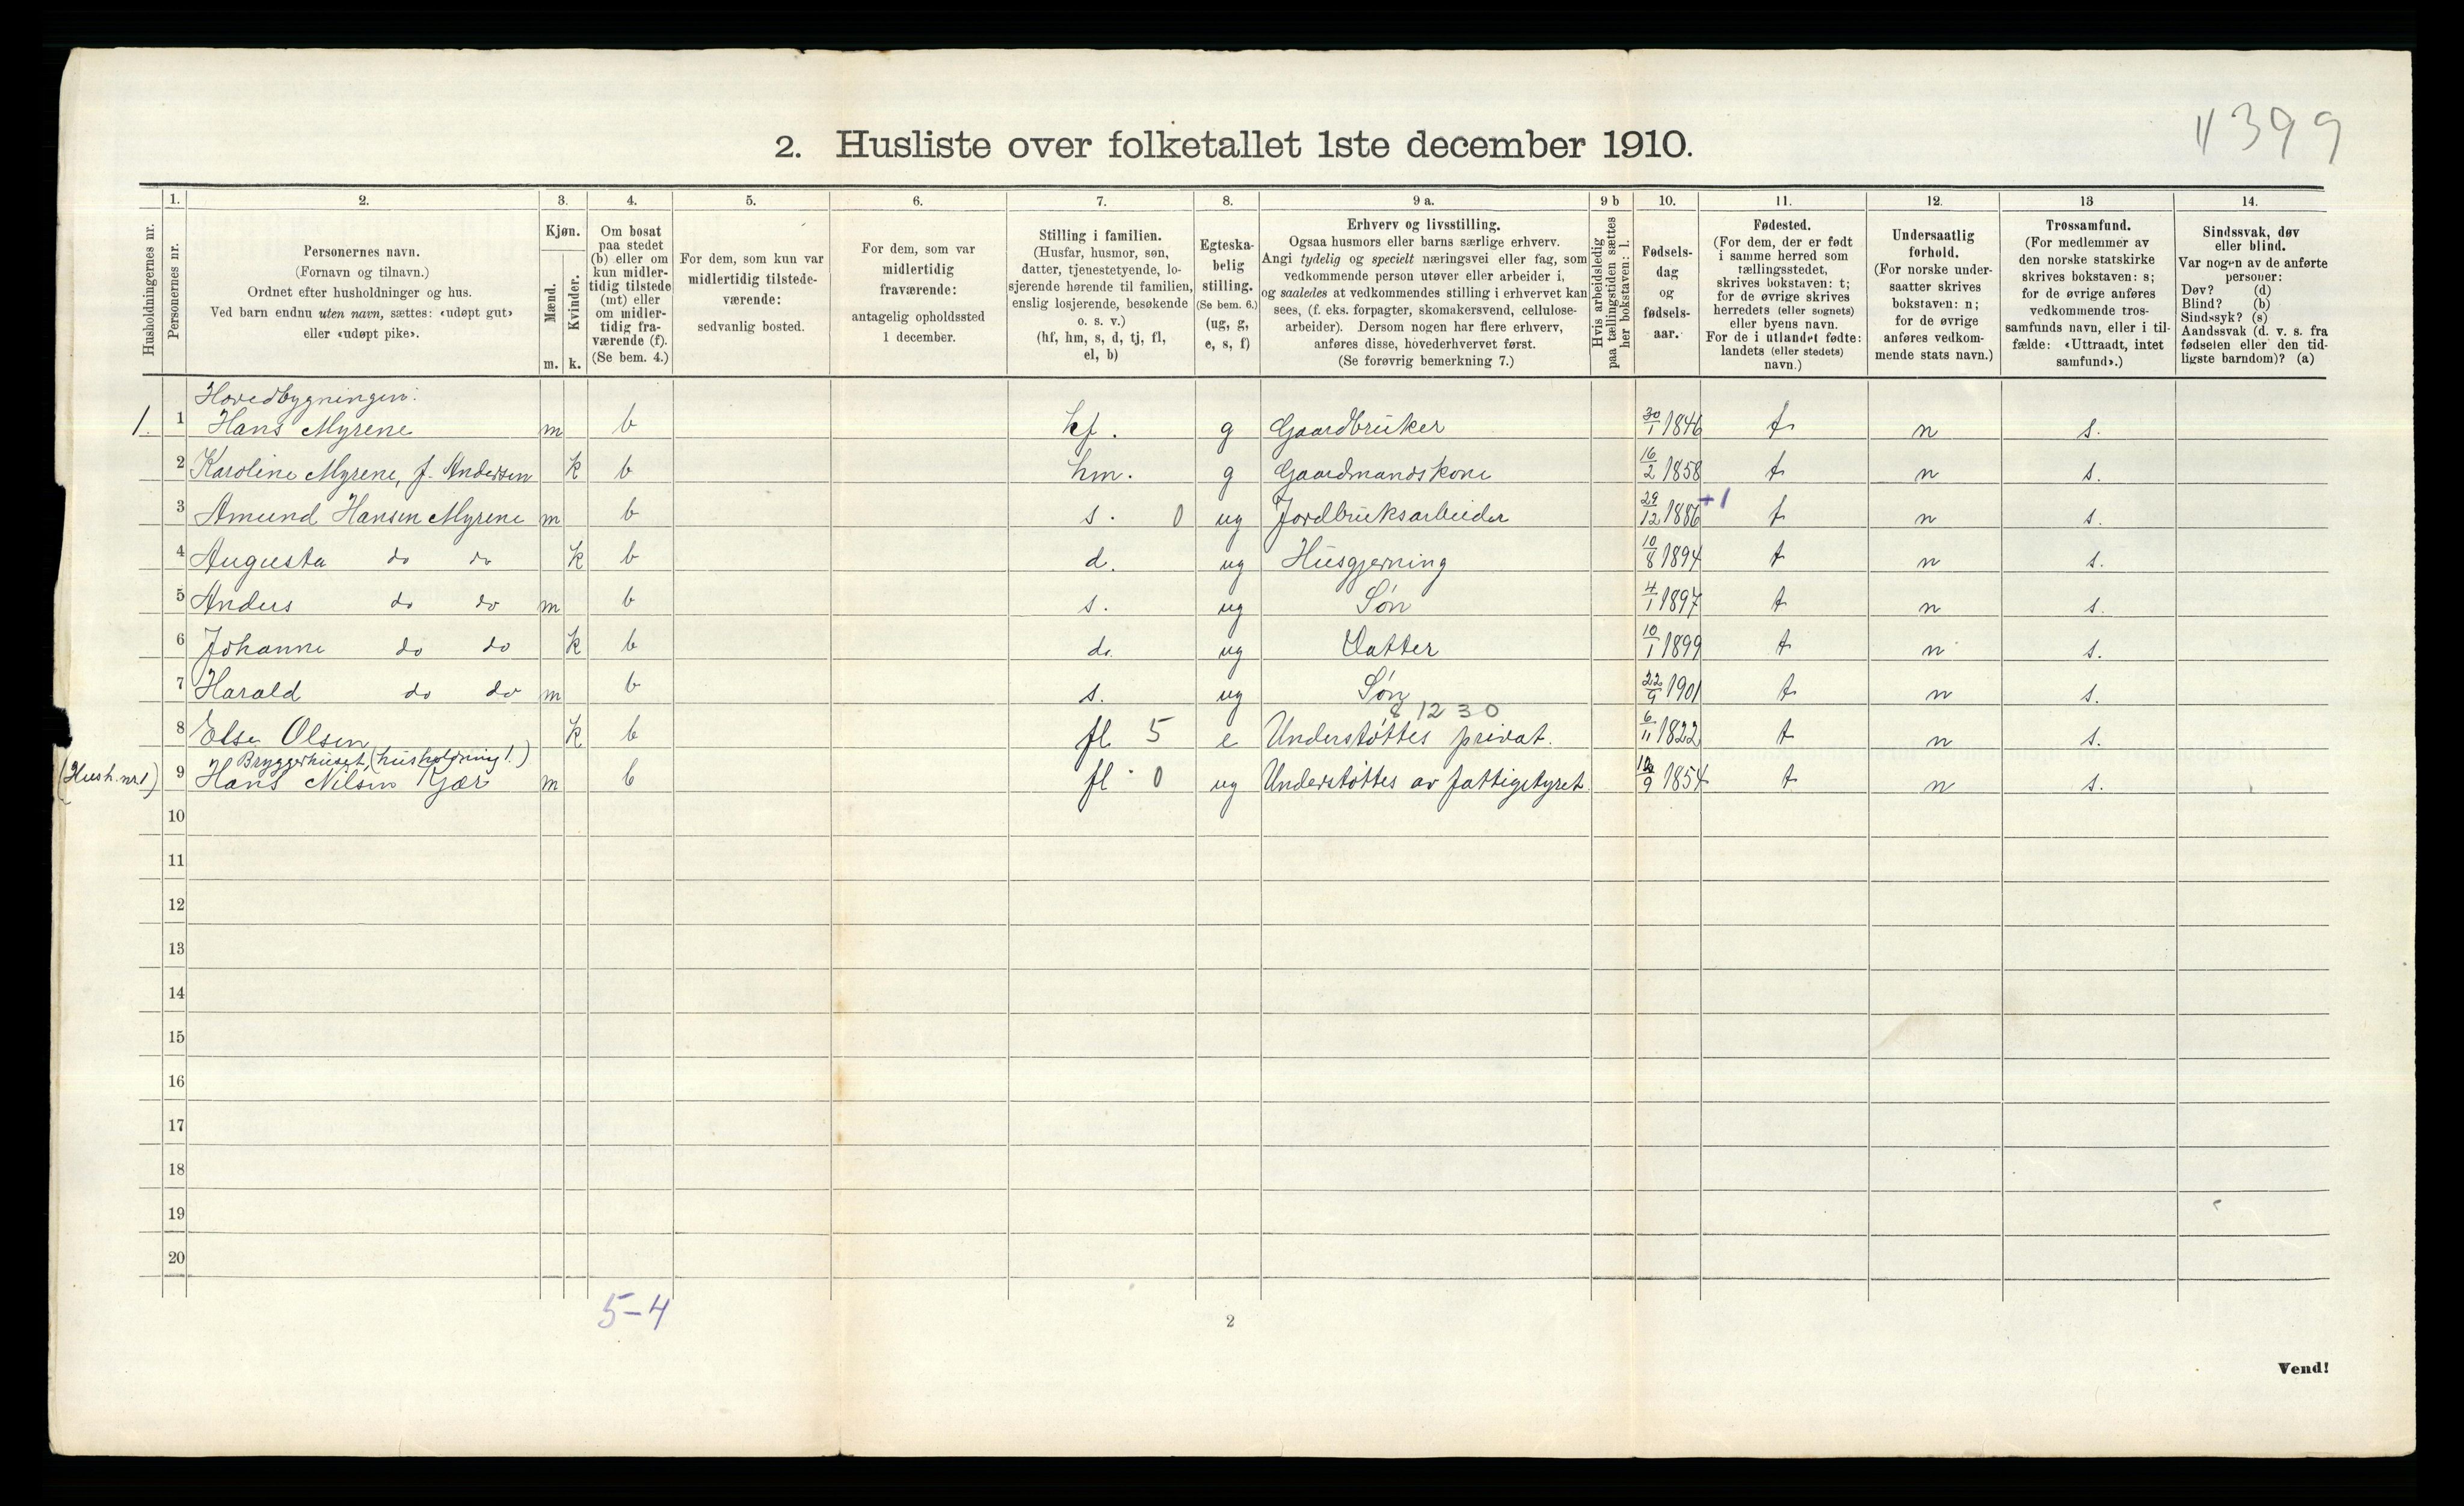 11399
2. Husliste over folketallet 1ste december 1910.
Husholdningernes nr.
1. Personernes nr.
2. Personernes navn. (Fornavn og tilnavn.) Ordnet efter husholdninger og hus. Ved barn endnu uten navn, sættes: «udøpt gut» eller «udøpt pike».
3. Kjøn. Mænd. m. Kvinder. k.
4. Om bosat paa stedet (b) eller om kun midlertidig tilstede (mt) eller om midlertidig fraværende (f). (Se bem. 4.)
5. For dem, som kun var midlertidig tilstedeværende: sedvanlig bosted.
6. For dem, som var midlertidig fraværende: antagelig opholdssted 1 december.
7. Stilling i familien. (Husfar, husmor, søn, datter, tjenestetyende, losjerende hørende til familien, enslig losjerende, besøkende o. s. v.) (hf, hm, s, d, tj, fl, el, b)
8. Egteskabelig stilling. (Se bem. 6.) (ug, g, e, s, f)
9 a. Erhverv og livsstilling. Ogsaa husmors eller barns særlige erhverv. Angi tydelig og specielt næringsvei eller fag, som vedkommende person utøver eller arbeider i, og saaledes at vedkommendes stilling i erhvervet kan sees, (f. eks. forpagter, skomakersvend, cellulosearbeider). Dersom nogen har flere erhverv, anføres disse, hovederhvervet først. (Se forøvrig bemerkning 7.)
9 b Hvis arbeidsledig paa tællingstiden sættes her bokstaven: l.
10. Fødselsdag og fødselsaar.
11. Fødested. (For dem, der er født i samme herred som tællingsstedet, skrives bokstaven: t; for de øvrige skrives herredets (eller sognets) eller byens navn. For de i utlandet fødte: landets (eller stedets) navn.)
12. Undersaatlig forhold. (For norske undersaatter skrives bokstaven: n; for de øvrige anføres vedkommende stats navn.)
13 Trossamfund. (For medlemmer av den norske statskirke skrives bokstaven: s; for de øvrige anføres vedkommende trossamfunds navn, eller i tilfælde: «Uttraadt, intet samfund».)
14. Sindssvak, døv eller blind. Var nogen av de anførte personer: Døv? (d) Blind? (b) Sindssyk? (s) Aandssvak (d. v. s. fra fødselen eller den tidligste barndom)? (a)
Hovedbygningen:
1. 1 Hans Myrene m b hf. g Gaardbruker 30/1 1846 t n s.
2 Karoline Myrene, f. Andersen k b hm. g Gaardmandskone 16/2 1858 t n s.
3 Amund Hansen Myrene m b s. 0 ug Jordbruksarbeider 29/12 1886 +1 t n s.
4 Augusta do do k b d. ug Husgjerning 10/8 1894 t n s.
5 Anders do do m b s. ug Søn 4/1 1897 t n s.
6 Johanne do do k b d. ug Datter 10/1 1899 t n s.
7 Harald do do m b s. ug Søn 22/9 1901 t n s.
8 12 30
8 Else Olsen k b fl 5 e Understøttes privat. 6/11 1822 t n s.
Bryggerhuset, (husholdning 1.)
(Hush. nr. 1) 9 Hans Nilsen Kjær m b fl 0 ug Understøttes av fattigstyret. /9 1854 t n s.
10
11
12
13
14
15
16
17
18
19
20
5-4
2
Vend!